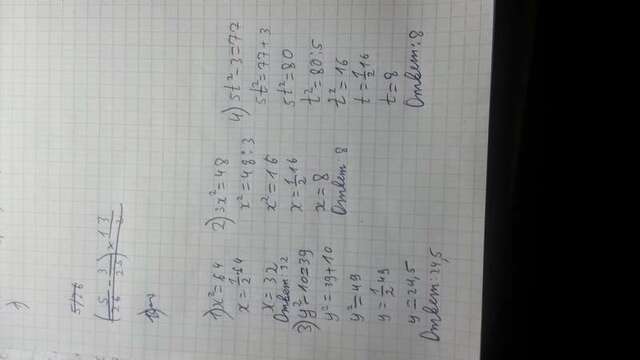 1)
5/26
(5/26 - 3/25) × 13/2
1) x² = 64
x = 1/2 · 64
x = 32
Ответ: 32
2) 3x² = 48
x² = 48 : 3
x² = 16
x = 1/2 16
x = 8
Ответ 8
3) y² - 10 = 39
y² = 39 + 10
y² = 49
y = 1/2 49
y = 24,5
Ответ: 24,5
4) 5t² - 3 = 77
5t² = 77 + 3
5t² = 80
t² = 80 : 5
t² = 16
t = 1/2 16
t = 8
Ответ: 8